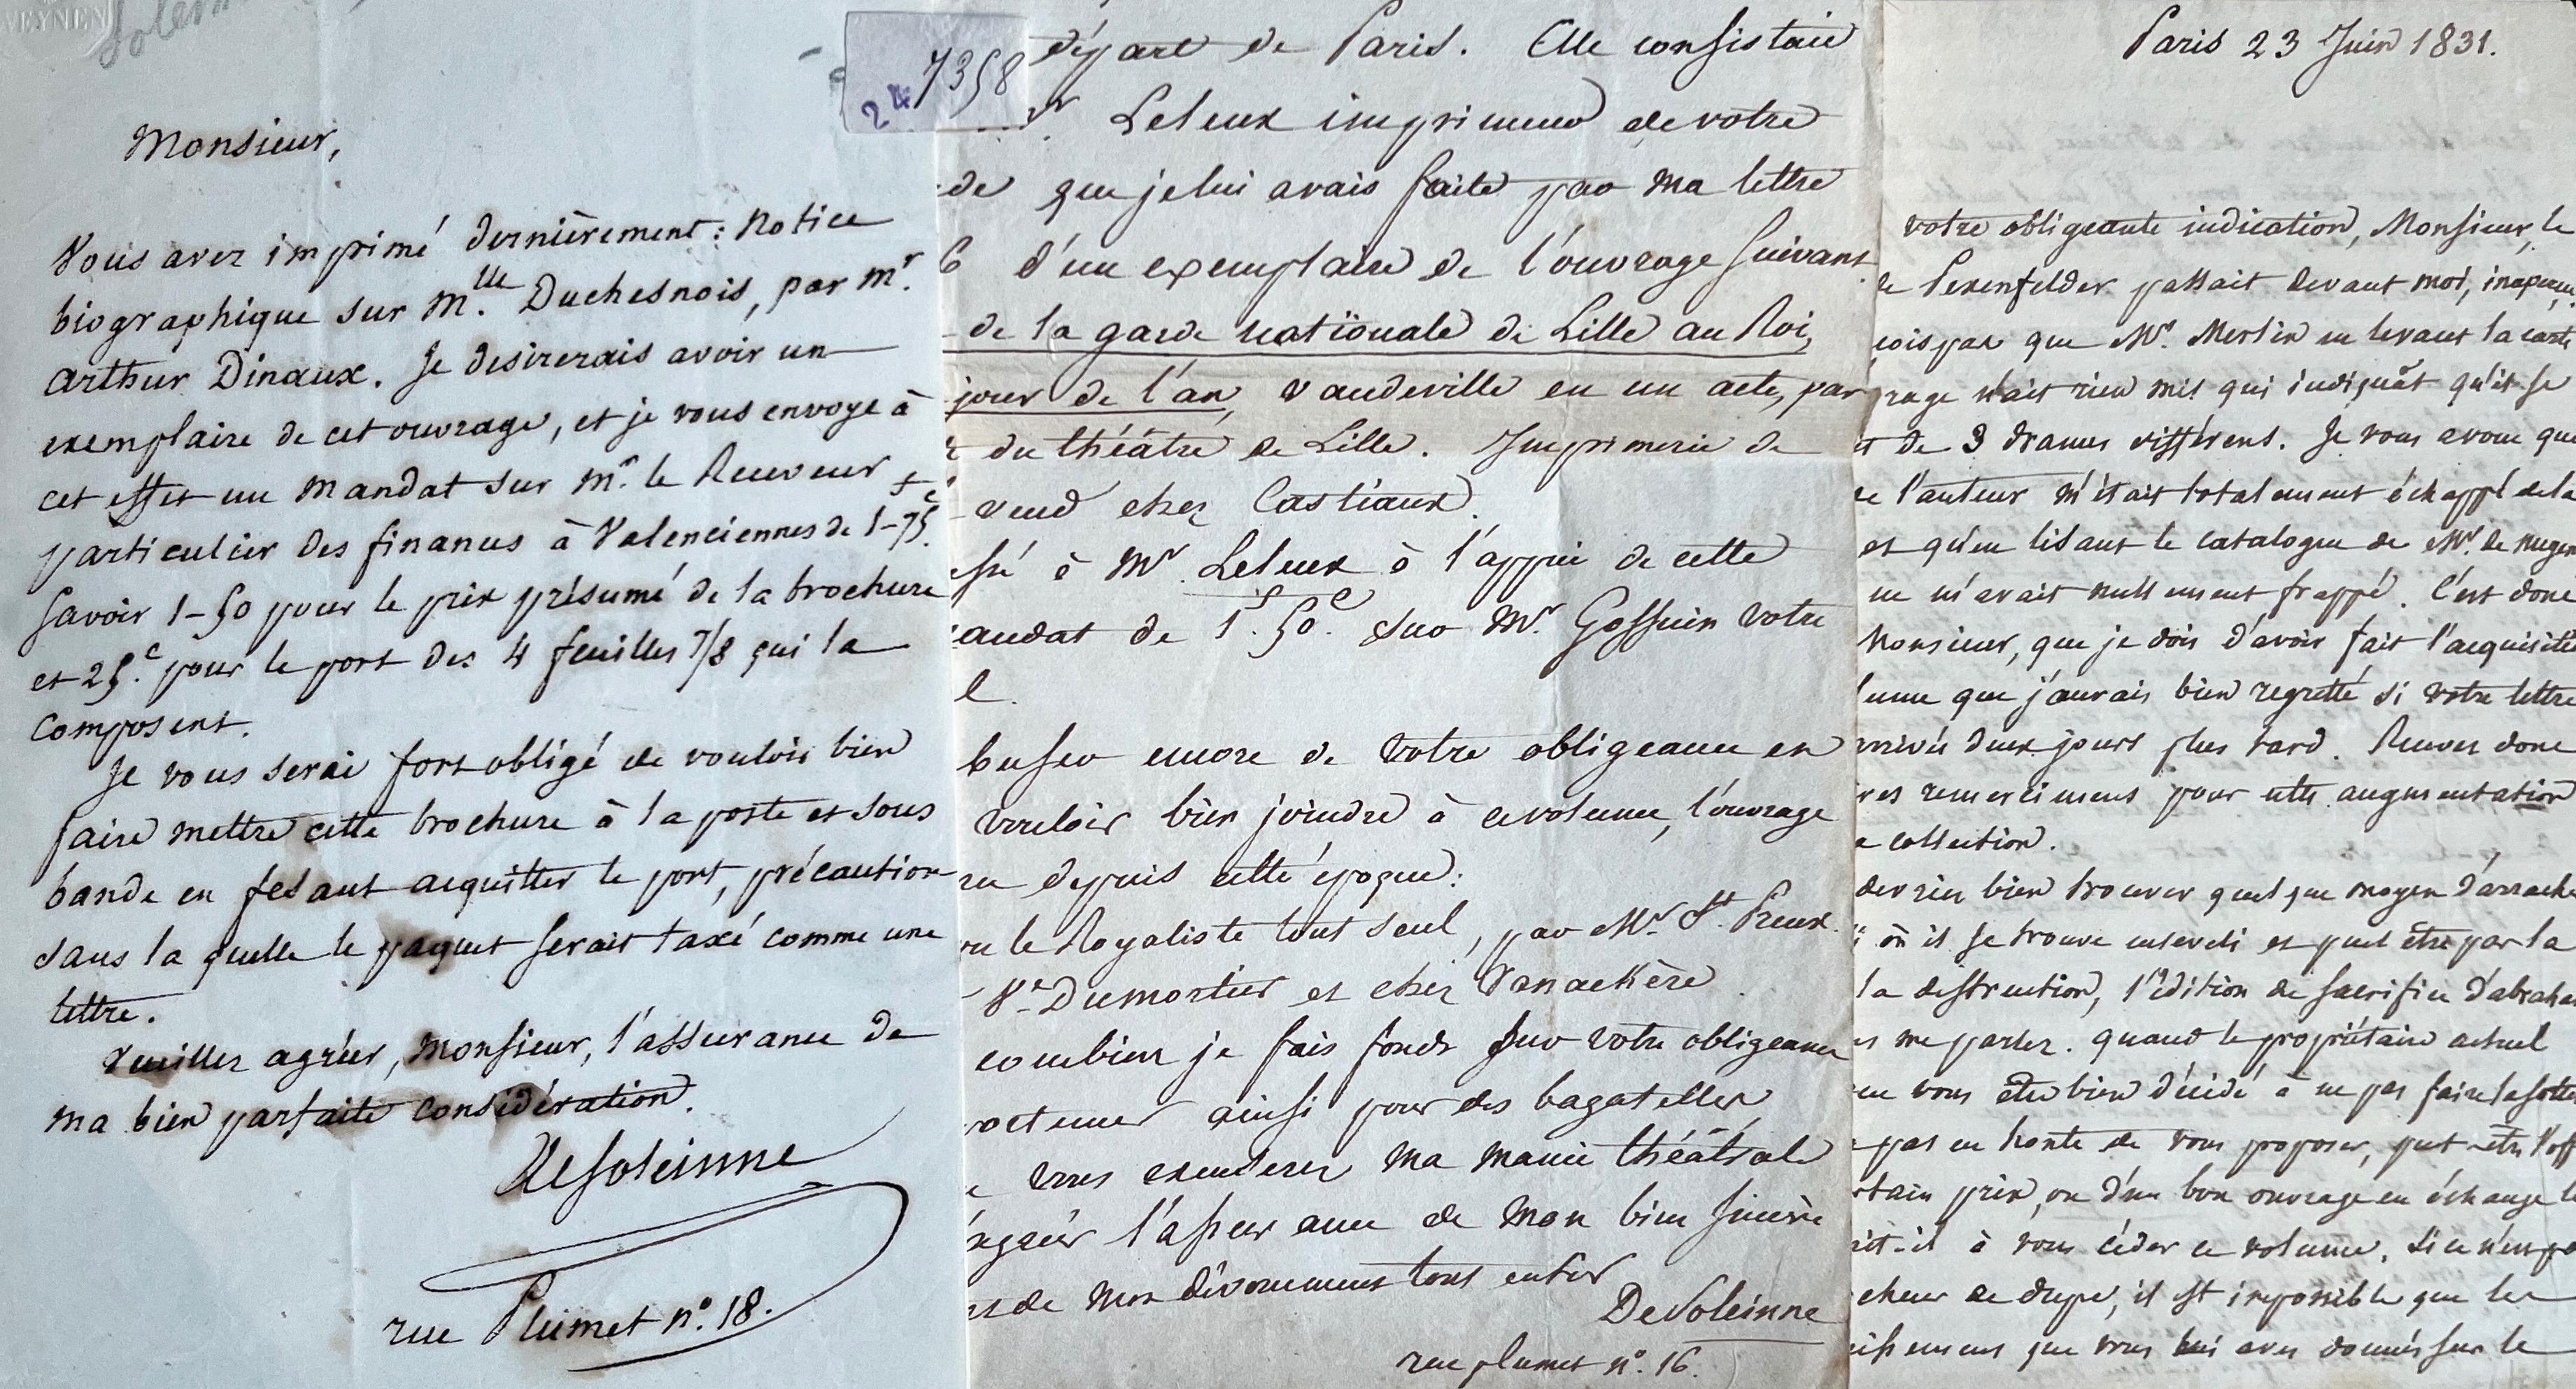 VEYNEN
Solein
Monsieur,
Vous avez imprimé dernièrement : Notice
biographique sur Mlle. Duchesnois, par Mr.
Arthur Dinaux. Je desirerais avoir un
exemplaire de cet ouvrage, et je vous envoye à
cet effet un mandat sur Mr. le Receveur
particulier des finances à Valenciennes de 1-75c.
savoir 1-50 pour le prix présumé de la brochure
et 25.c pour le port des 4 feuilles 7/8 qui la
composent.
Je vous serai fort obligé de vouloir bien
faire mettre cette brochure à la poste et sous
bande en fesant acquitter le port, précaution
sans la quelle le paquet serait taxé comme une
lettre.
Veuillez agréer, Monsieur, l'assurance de
ma bien parfaite considération.
DeSoleinne
rue Plumet n°. 18.
24 7358
départ de Paris. Elle consistait
Mr. Leleux imprimeur de votre
de que je lui avais faite par ma lettre
6 d'un exemplaire de l'ouvrage suivant
de la garde nationale de Lille au Roi,
jour de l'an, vaudeville en un acte, par
du théâtre de Lille. Imprimerie de
vend chez Castiaux.
ssé à Mr. Leleux à l'appui de cette
andat de 1f.50c. sur Mr. Gossuin votre
l.
buser encore de votre obligeance en
vouloir bien joindre à ce volume, l'ouvrage
ru depuis cette époque :
ou le Royaliste tout seul, par Mr. St. Preux.
Ve. Dumortier et chez Vanackère
combien je fais fonds sur votre obligeance
ainsi pour des bagatelles
vous excuserez ma manie théâtrale
agréer l'assurance de mon bien sincère
et de mon dévouement tout entier
DeSoleinne
rue plumet n°. 16.
Paris 23 Juin 1831.
votre obligeante indication, Monsieur, le
de Pexenfelder passait devant moi, inaperçu
çois pas que Mr. Merlin en levant la carte
rage n'ait rien mis qui indiquât qu'il se
t de 3 drames différens. Je vous avoue que
e l'auteur m'était totalement échappé de la
et qu'en lisant le catalogue de Mr. de Nugen
ne m'avait nullement frappé. C'est donc
Monsieur, que je dois d'avoir fait l'acquisitio
lume que j'aurais bien regretté si votre lettre
arrivée deux jours plus tard. Recevez donc
res remerciemens pour cette augmentation
a collection.
devriez bien trouver quelque moyen d'arrache
où il se trouve enseveli et peut être par la
la destruction, l'édition du sacrifice d'abraham
s me parlez. quand le propriétaire actuel
vous être bien décidé à ne pas faire la sotte
pas eu honte de vous proposer, peut-être l'off
rtain prix, ou d'un bon ouvrage en échange le
ait-il à vous céder ce volume.
cheur de drape, il est impossible que les
issemens que vous lui avez donnés sur le